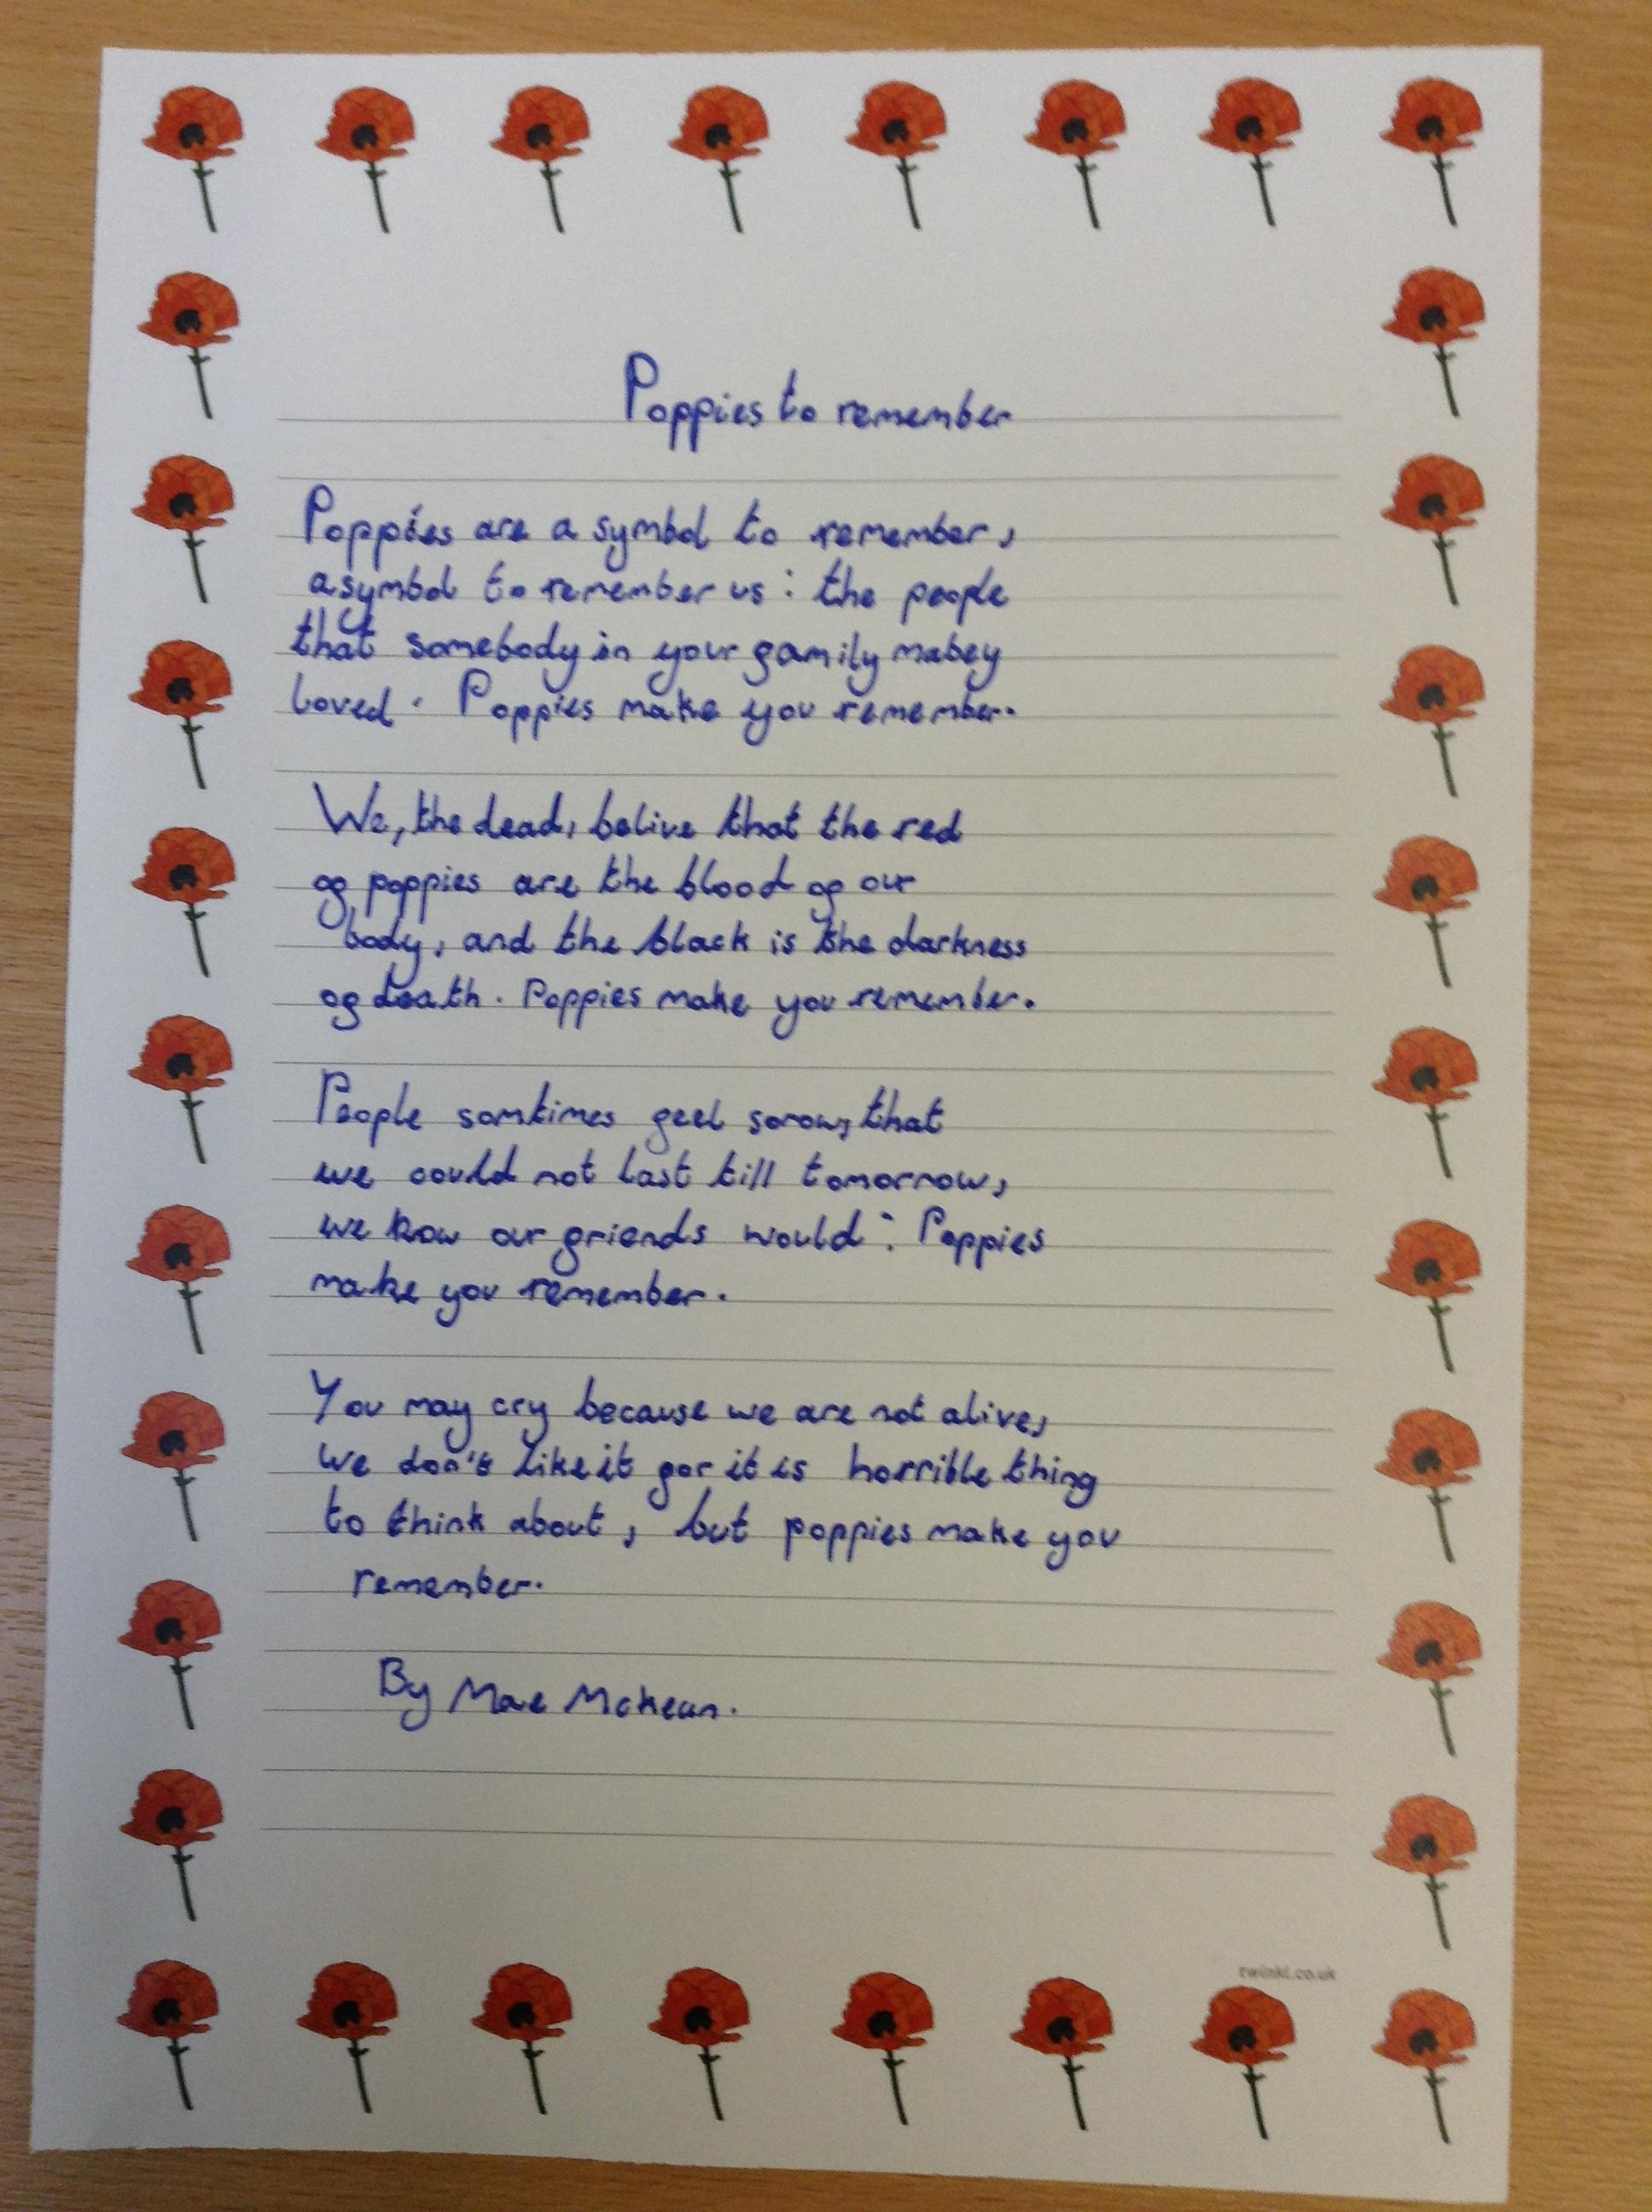 Poppies to remember
Poppies are a symbol to remember,
a symbol to remember us: the people
that somebody in your family mabey
loved. Poppies make you remember.
We, the dead, belive that the red
of poppies are the blood of our
body, and the black is the darkness
of death. Poppies make you remember.
People somtimes feel sorow, that
we could not last till tomorrow,
we know our friends would: Poppies
make you remember.
You may cry because we are not alive,
We don't like it for it is horrible thing
to think about, but poppies make you
remember.
By Mae McKean.
twinkl.co.uk